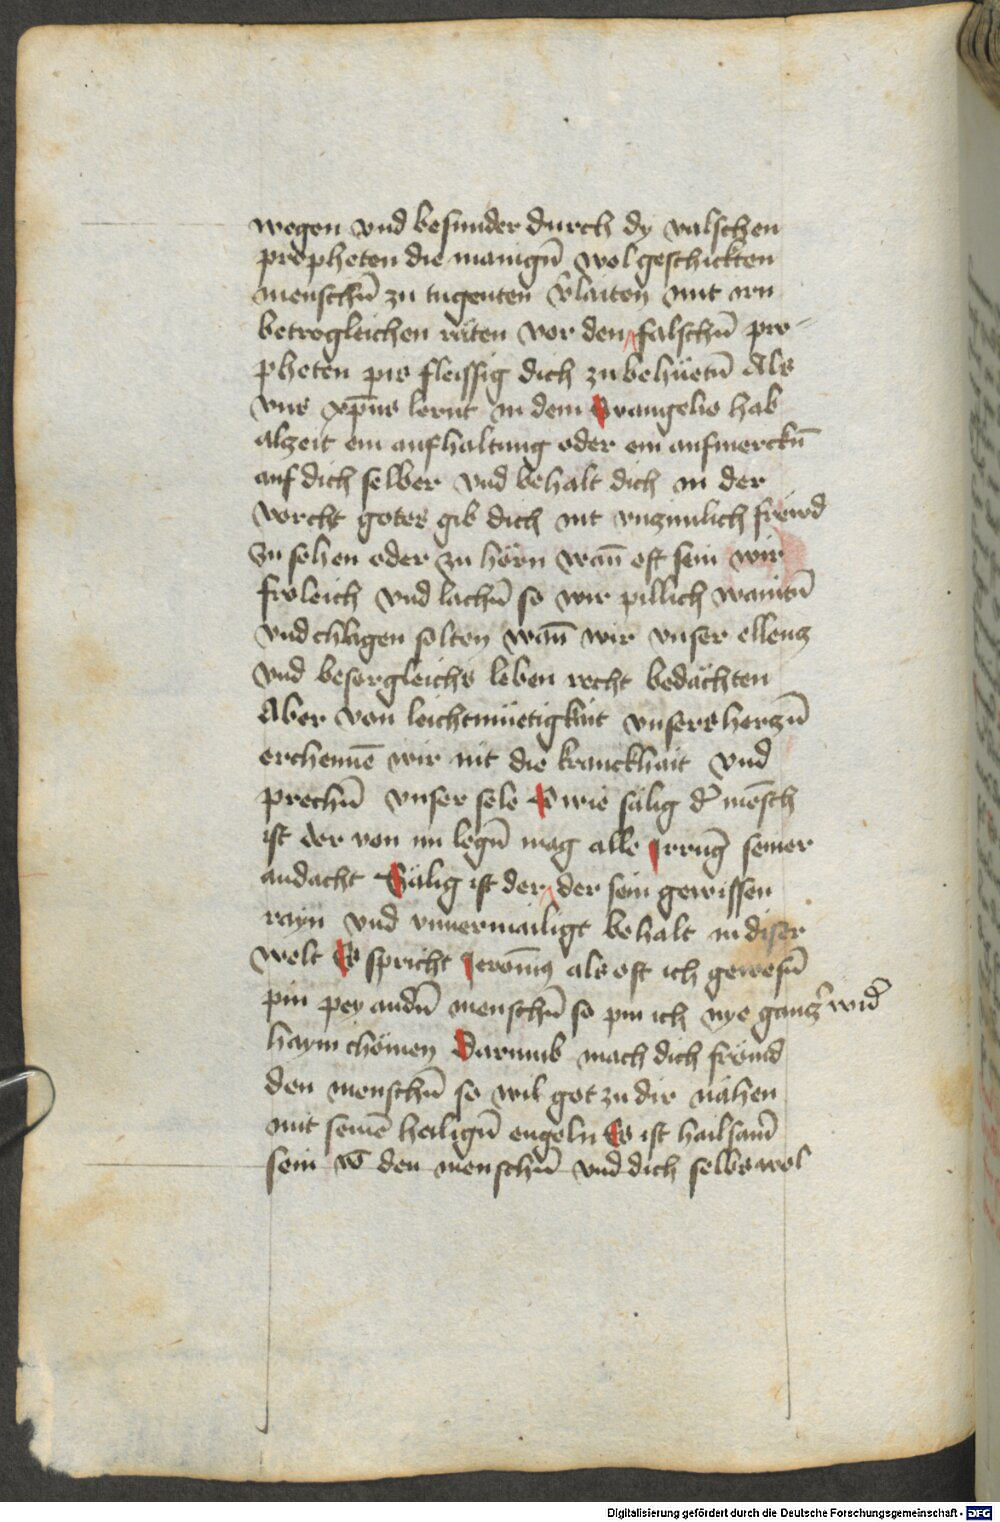 wegen vnd besunder durch dy valschen
propheten die manigñ wol geschickten
menschñ zu tugenten v̄laiten mit irn
betrogleichen räten vor den falschñ pro-
pheten pis fleissig dich zu behüetñ Als
vns xp̄us lernt in dem Ewangelio hab
alzeit ein aufhaltung oder ein aufmerckñ
auf dich selber vnd behalt dich in der
vorcht gotes gib dich nit vnzimlich frewd
zu sehen oder zu hörn wañ oft sein wir
froleich vnd lachñ so wir pillich waintñ
vnd chlagen solten wañ wir vnser ellentz
vnd besorgleichs leben recht bedächten
Aber von leichtmüetigkait vnsers herzñ
erchennē wir nit die kranckhait vnd
prechñ vnser sele O wie sälig d' mēsch
ist der von im legñ mag alle Irrūg seiner
andacht Sälig ist der der sein gewissen
rayn vnd vnuermailigt behalt in diser
welt Es spricht Jeronimꝯ als oft ich gewesñ
pin pey andñ menschñ so pin ich nye gantz' wid'
haym chömen Darumb mach dich frömd
den menschñ so wil got zu dir nähen
mit seinē heiligñ engeln Es ist hailsam̄
sein vō den menschñ vnd dich selbs wol
Digitalisierung gefördert durch die Deutsche Forschungsgemeinschaft - DFG